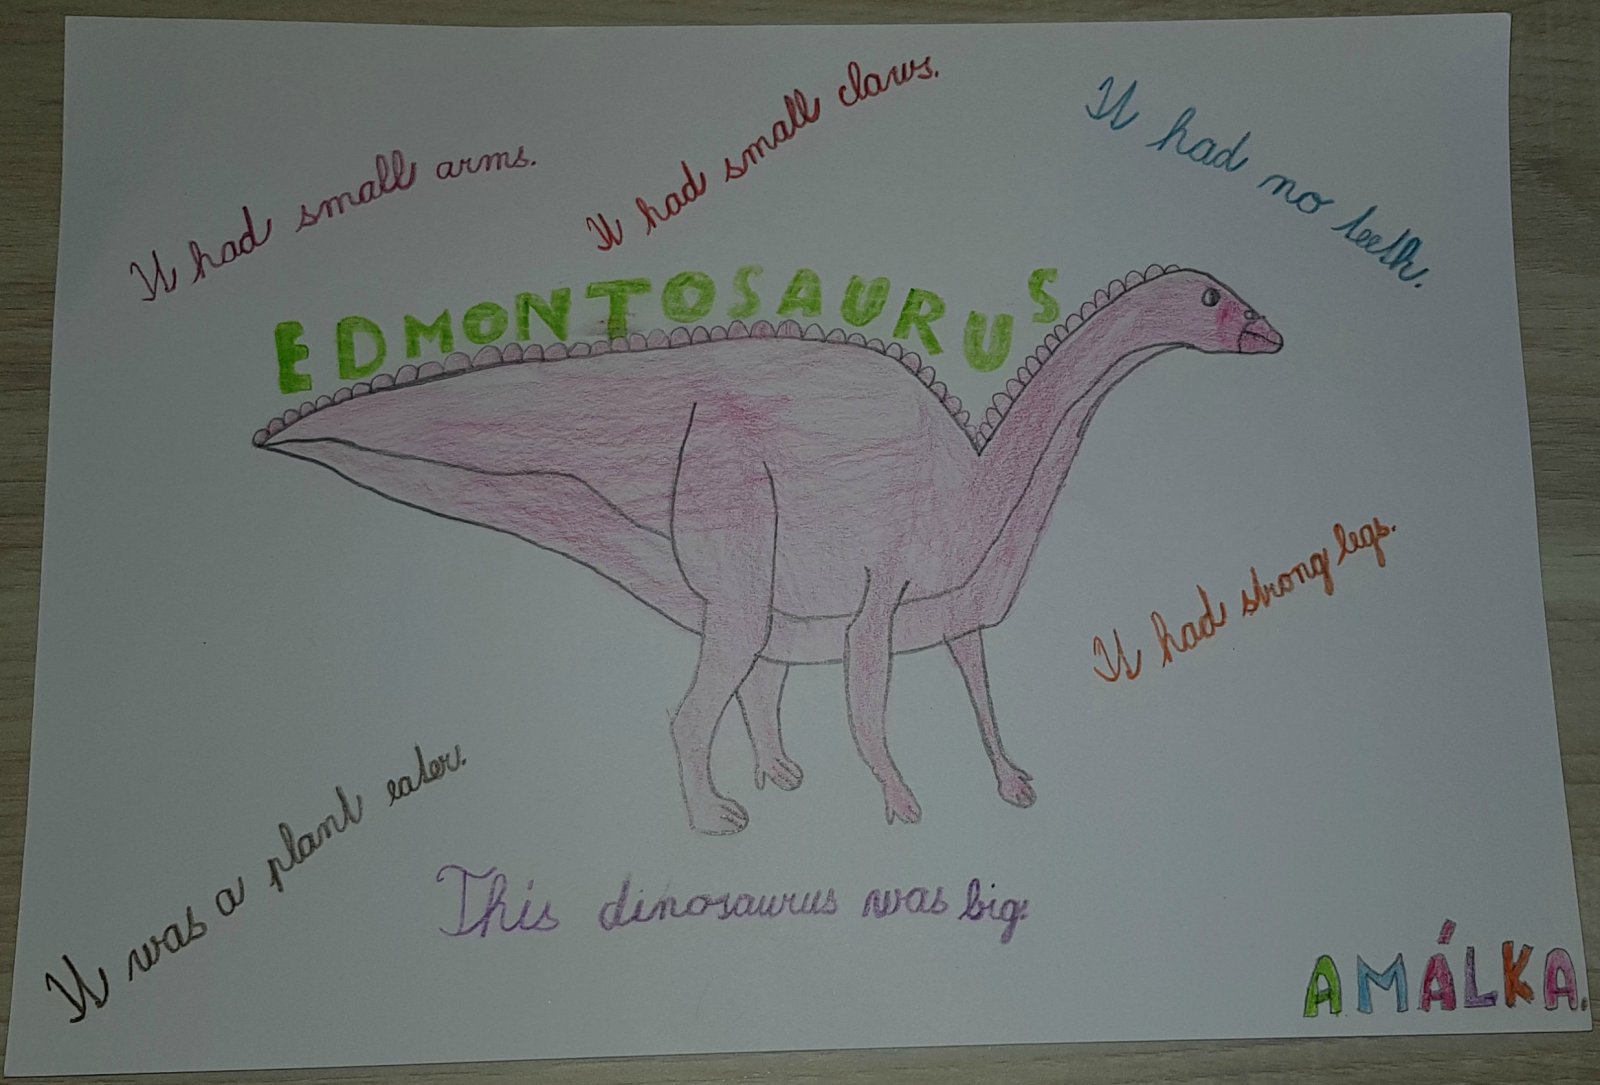 It had small arms.
It had small claws.
It had no teeth.
EDMONTOSAURUS
It had strong legs.
It was a plant eater.
This dinosaurus was big.
AMÁLKA.